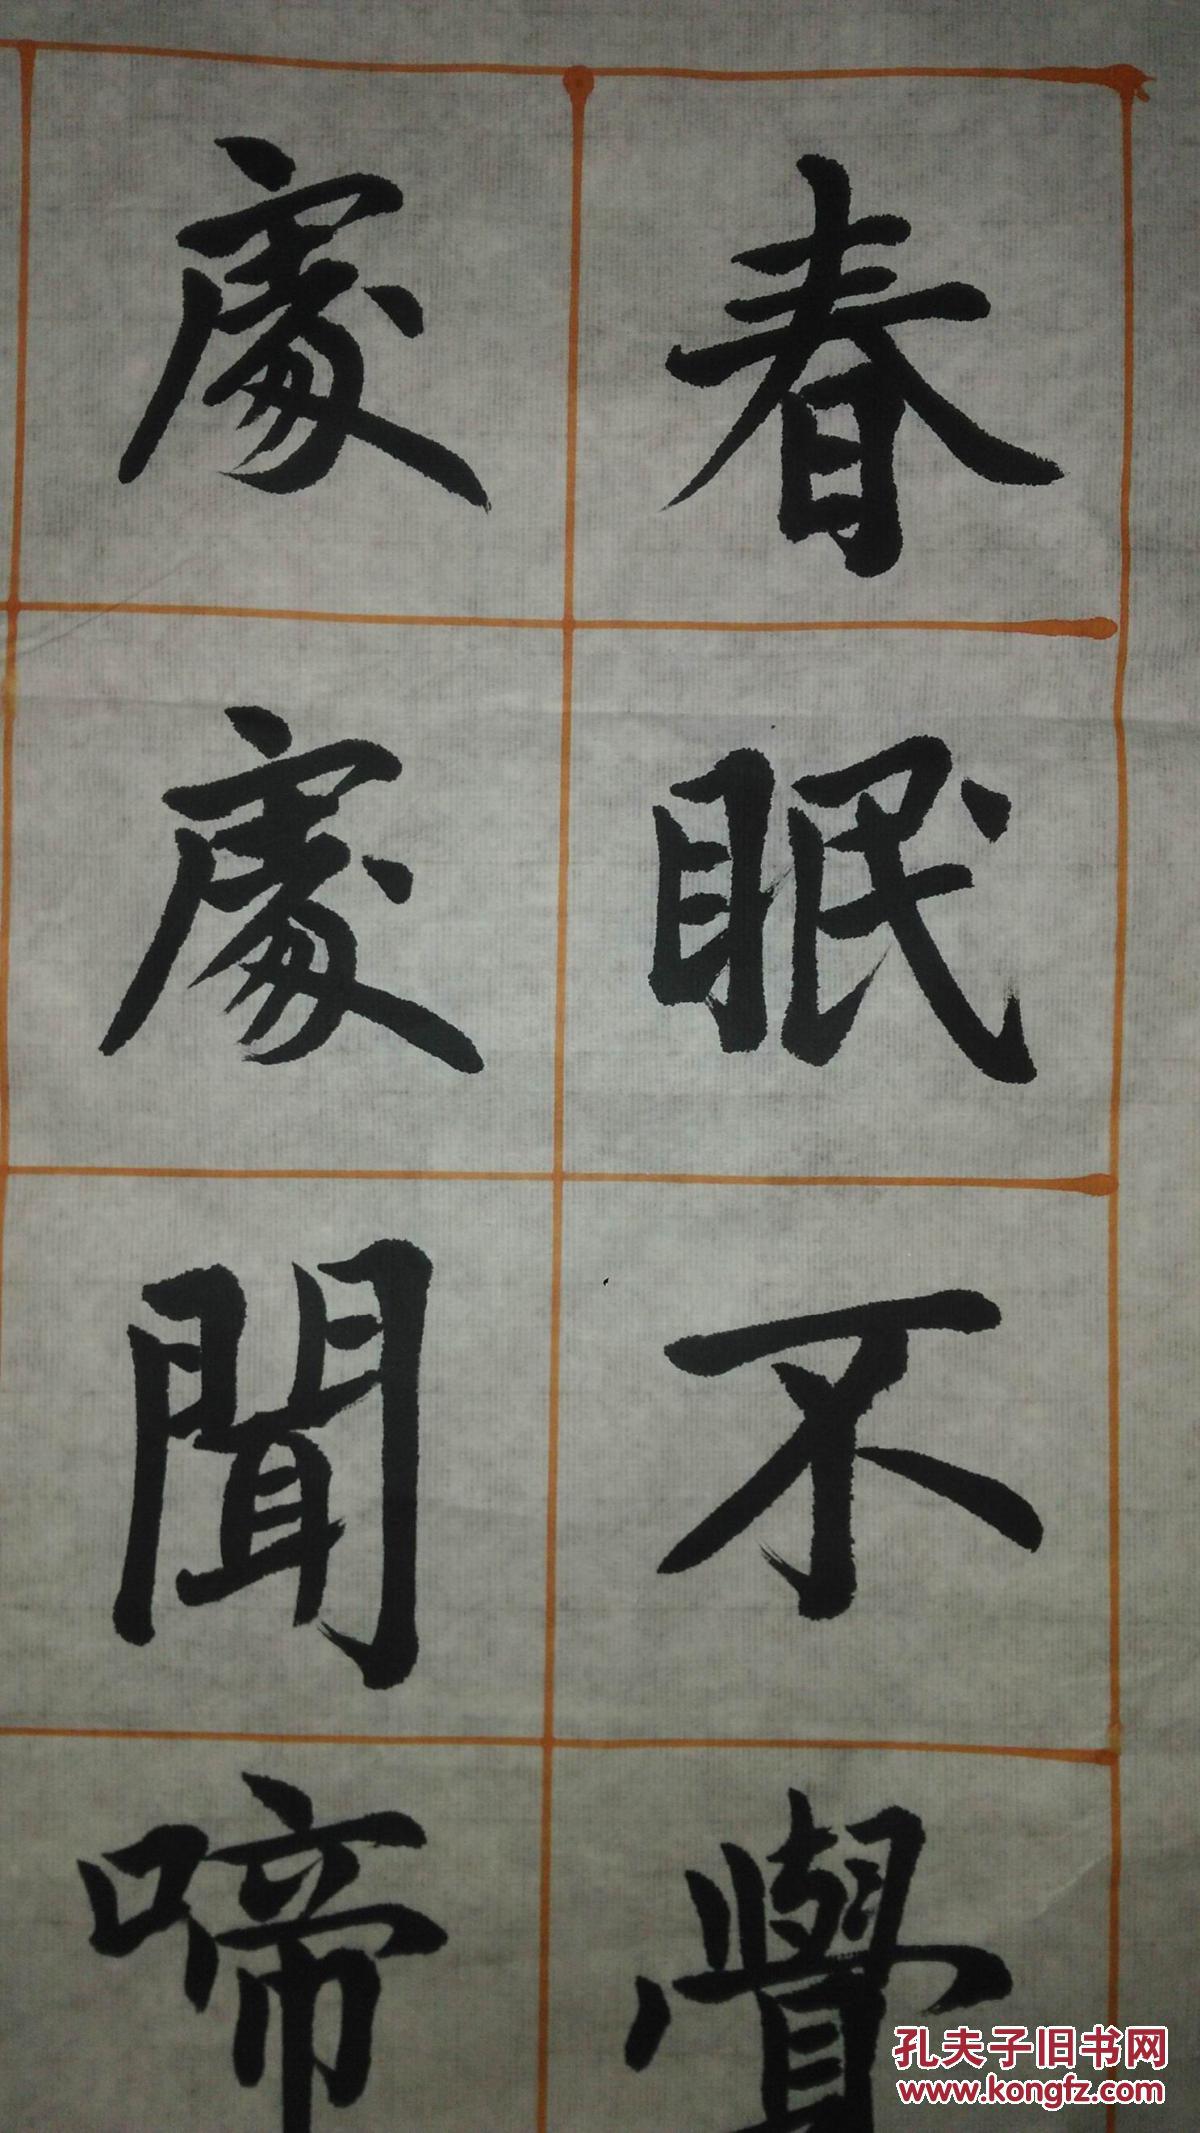 春眠不覺
處處聞啼
孔夫子旧书网
www.kongfz.com